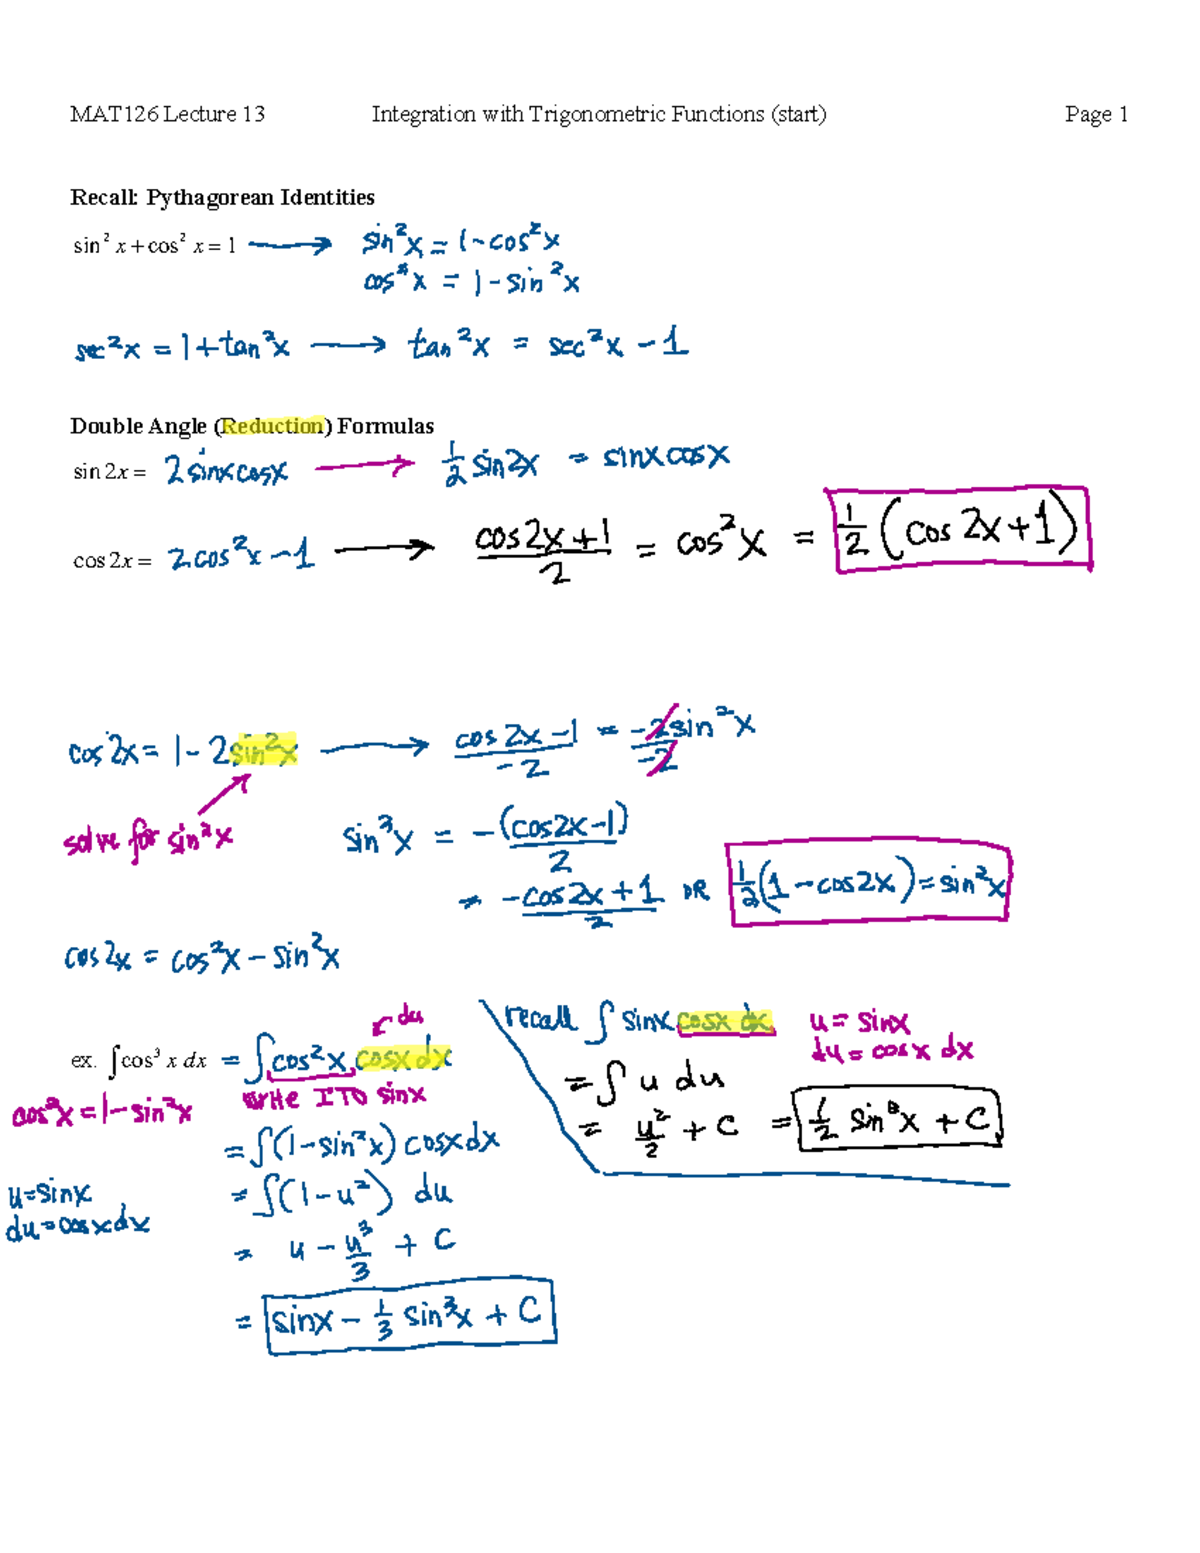 MAT126 Lecture 13 Integration with Trigonometric Functions (start) Page 1
Recall: Pythagorean Identities
sin² x + cos² x = 1 → sin²x = 1 - cos²x
cos²x = 1 - sin²x
sec²x = 1 + tan²x → tan²x = sec²x - 1
Double Angle (Reduction) Formulas
sin 2x = 2 sinx cosx → 1/2 sin2x = sinx cosx
cos 2x = 2cos²x - 1 → (cos2x + 1)/2 = cos²x = 1/2 (cos 2x + 1)
cos 2x = 1 - 2sin²x → (cos 2x - 1)/-2 = -2sin²x/-2
solve for sin²x
sin²x = -(cos2x - 1)/2
= (-cos2x + 1)/2 OR 1/2(1 - cos2x) = sin²x
cos2x = cos²x - sin²x
ex. ∫cos³ x dx = ∫cos²x cosx dx
du
write ITO sinx
cos²x = 1 - sin²x
= ∫(1 - sin²x) cosx dx
= ∫(1 - u²) du
u = sinx
du = cosx dx
= u - u³/3 + C
= sinx - 1/3 sin³x + C
recall ∫ sinx cosx dx
u = sinx
du = cosx dx
= ∫ u du
= u²/2 + C = 1/2 sin²x + C